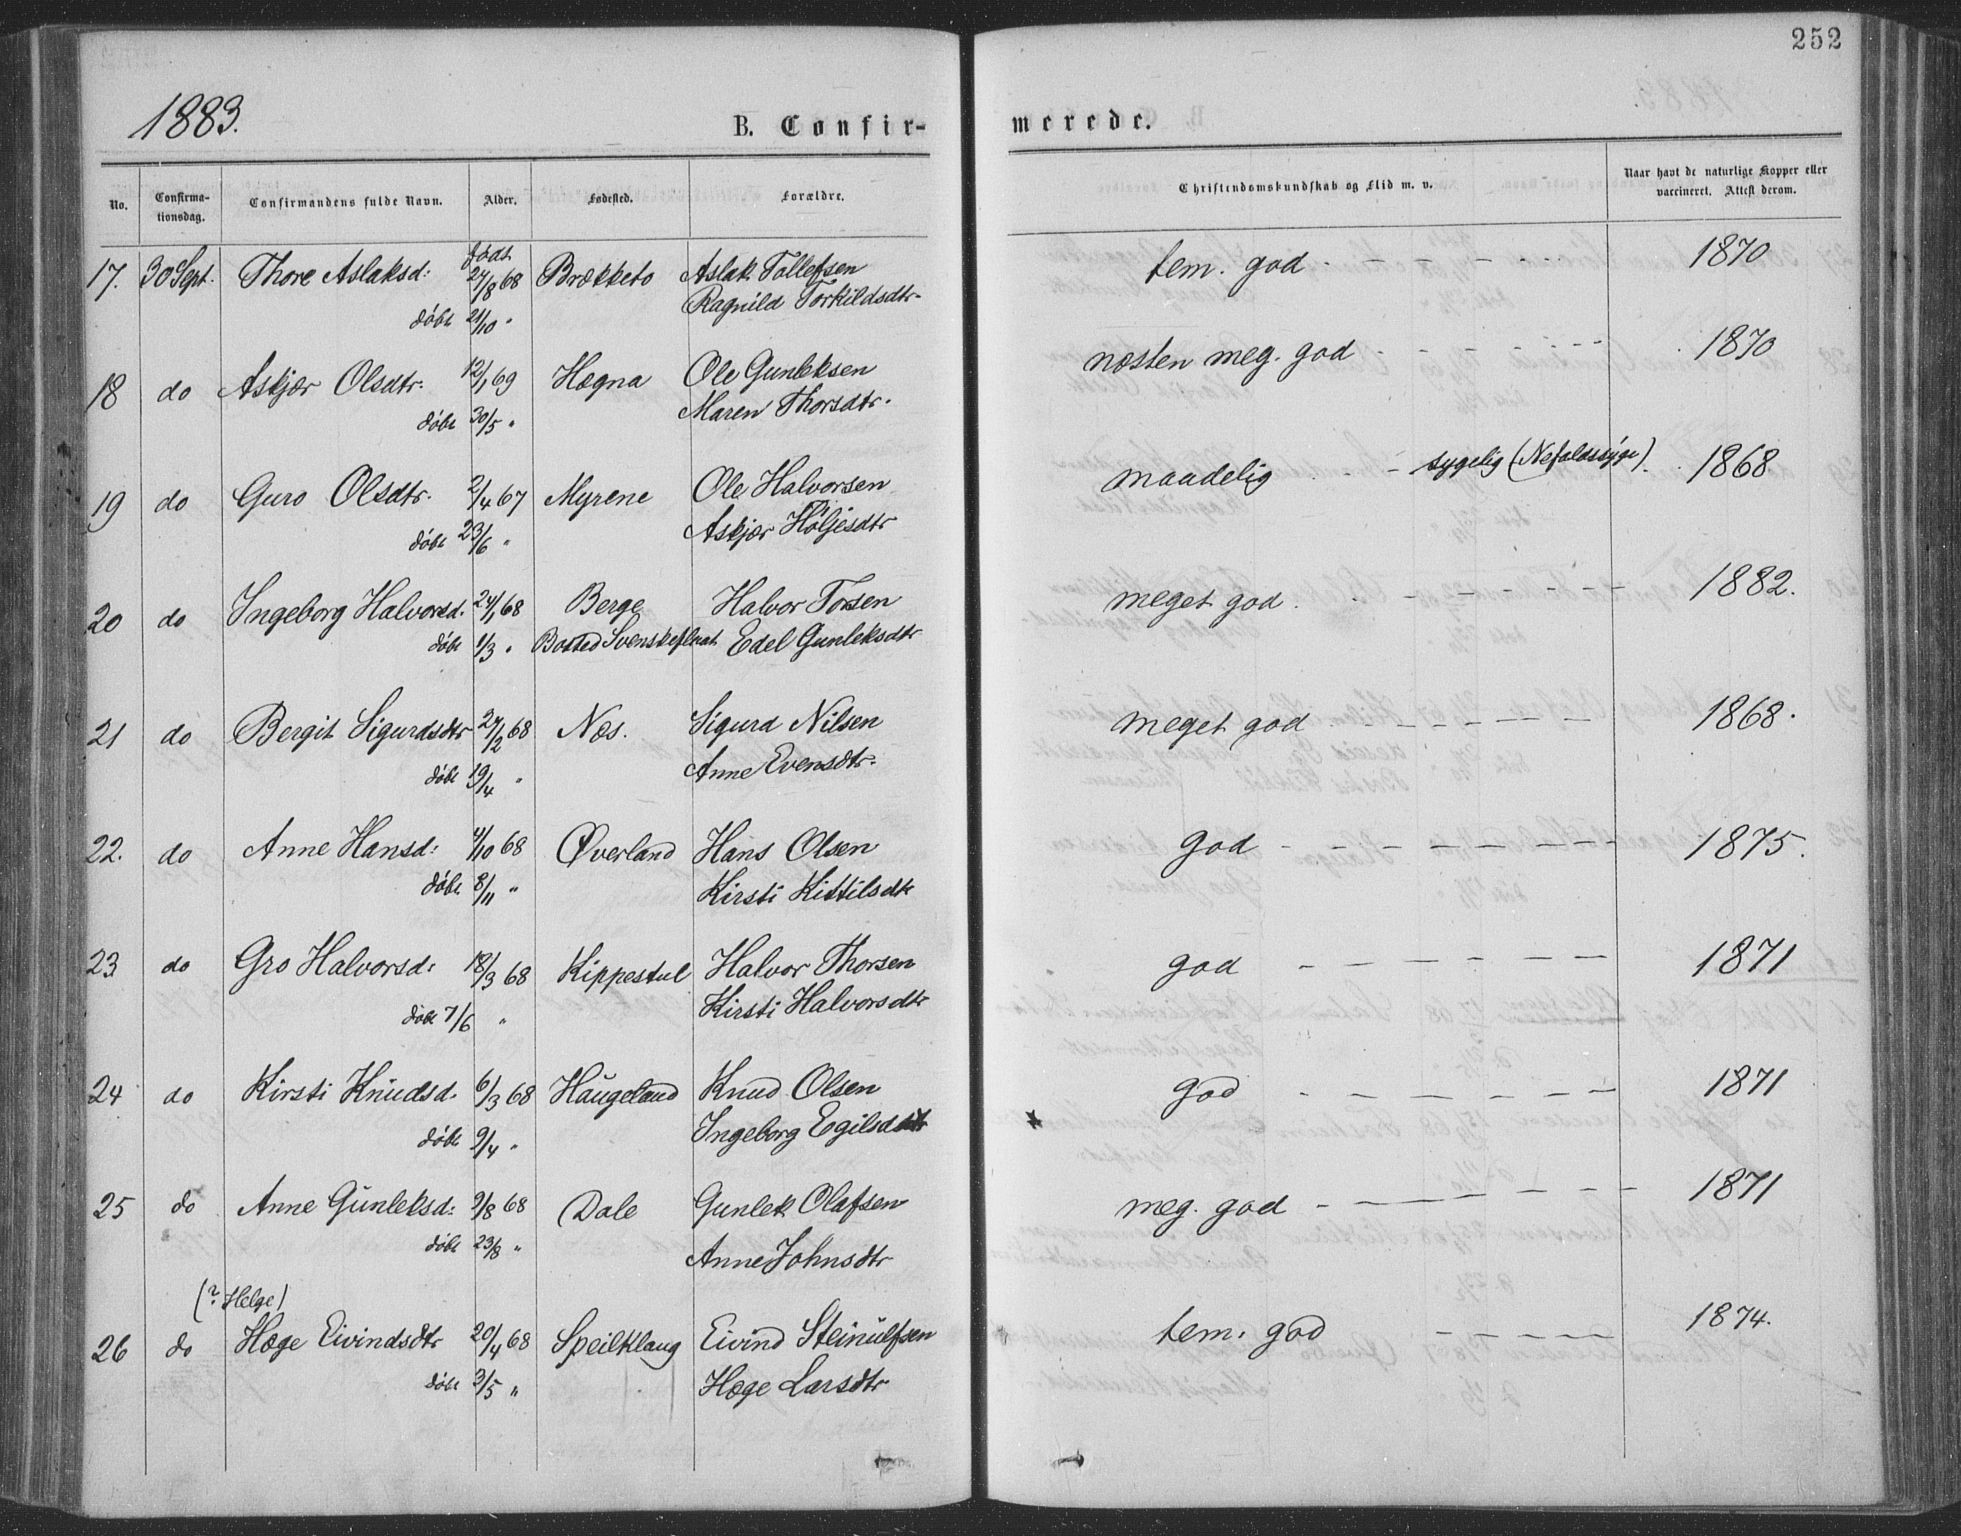 252
1883.
B. Confir-
merede.
No. Confirma-tionsdag. Confirmandens fulde Navn. Alder. Fødested. Forældre. Christendomskundskab og Flid m. v. Naar havt de naturlige Kopper eller vaccineret. Attest derom.
født
17. 30 Sept. Thore Aslaksd: 27/8 68 Brækketo Aslak Tollefsen tem. god 1870
døbt 21/10 " Ragnild Torkildsdtr.
18 do Askjær Olsdtr. 12/1 69 Hægna Ole Gunleksen næsten meg. god 1870
døbt 30/5 " Maren Thorsdtr.
19 do Guro Olsdtr. 2/4 67 Myrene Ole Halvorsen maadelig sygelig (Nefaldssyge). 1868
døbt 23/6 " Askjær Høljesdtr
20 do Ingeborg Halvorsd. 24/1 68 Berge Halvor Torsen meget god. 1882.
døbt 1/3 " Bosted Svenskeplads Edel Gunleksdtr
21 do Bergit Sigurdsdtr 27/2 68 Næs. Sigurd Nilsen meget god 1868.
døbt 19/4 " Anne Evensdtr.
22. do Anne Hansd: 4/10 68 Øverland Hans Olsen god 1875.
døbt 8/11 " Kirsti Kittilsdtr
23 do Gro Halvorsd: 18/3 68 Kippestul Halvor Thorsen god 1871
døbt 7/6 " Kirsti Halvorsdtr
24 do Kirsti Knudsd. 6/3 68 Haugeland Knud Olsen god 1871
døbt 9/4 " Ingeborg Egilsdtr
25 do Anne Gunleksd: 9/8 68 Dale Gunlek Olafsen meg. god 1871
døbt 23/8 " Anne Johnsdtr
(? Helge)
26 do Hæge Eivindsdtr 20/4 68 Speilklaug Eivind Steinulfsen tem. god 1874.
døbt 3/5 " Hæge Larsdtr